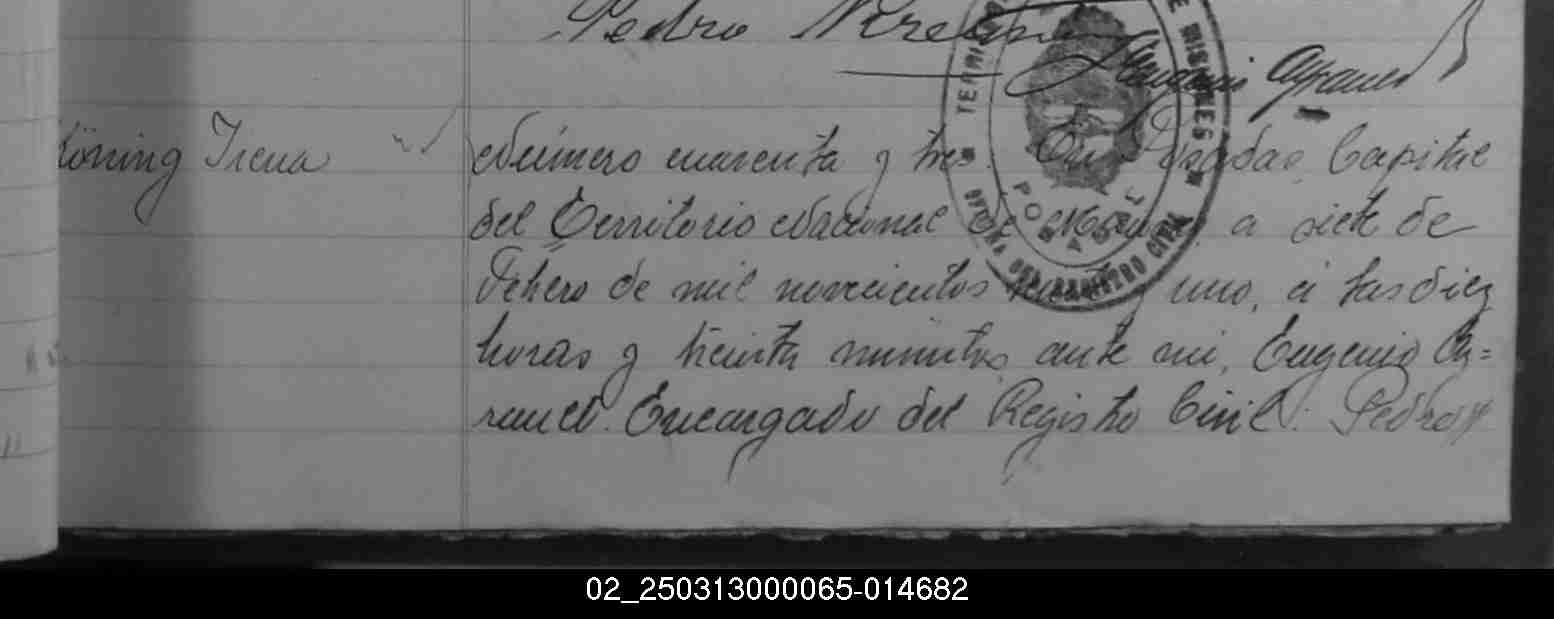 Pedro
Eugenio
Köning Irena
Número cuarenta y tres En Posadas, Capital
del Territorio Nacional de Misiones, a siete de
Febrero de mil novecientos treinta y uno, a las diez
horas y treinta minutos, ante mi, Eugenio
Encargado del Registro Civil: Pedro
TERRI DE MISIONES
POSADAS
OFICINA DEL REGISTRO CIVIL
02_250313000065-014682